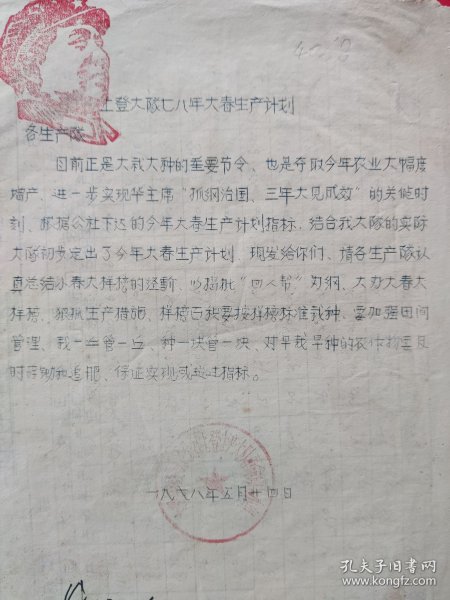 上登大队七八年大春生产计划
各生产队
目前正是大栽大种的重要节令、也是夺取今年农业大幅度
增产、进一步实现华主席“抓纲治国、三年大见成效”的关键时
刻、根据公社下达的今年大春生产计划指标，结合我大队的实际
大队初步定出了今年大春生产计划、现发给你们、请各生产队认
真总结小春大样榜的经验、以揭批“四人帮”为纲、大办大春大
样榜、狠抓生产措施、样榜田块要按样榜标准栽种、要加强田间
管理、栽一丘管一丘、种一块管一块、对早栽早种的农作物要及
时薅锄和追肥、保证实现或超过指标。
一九七八年五月廿四日
孔夫子旧书网
www.kongfz.com